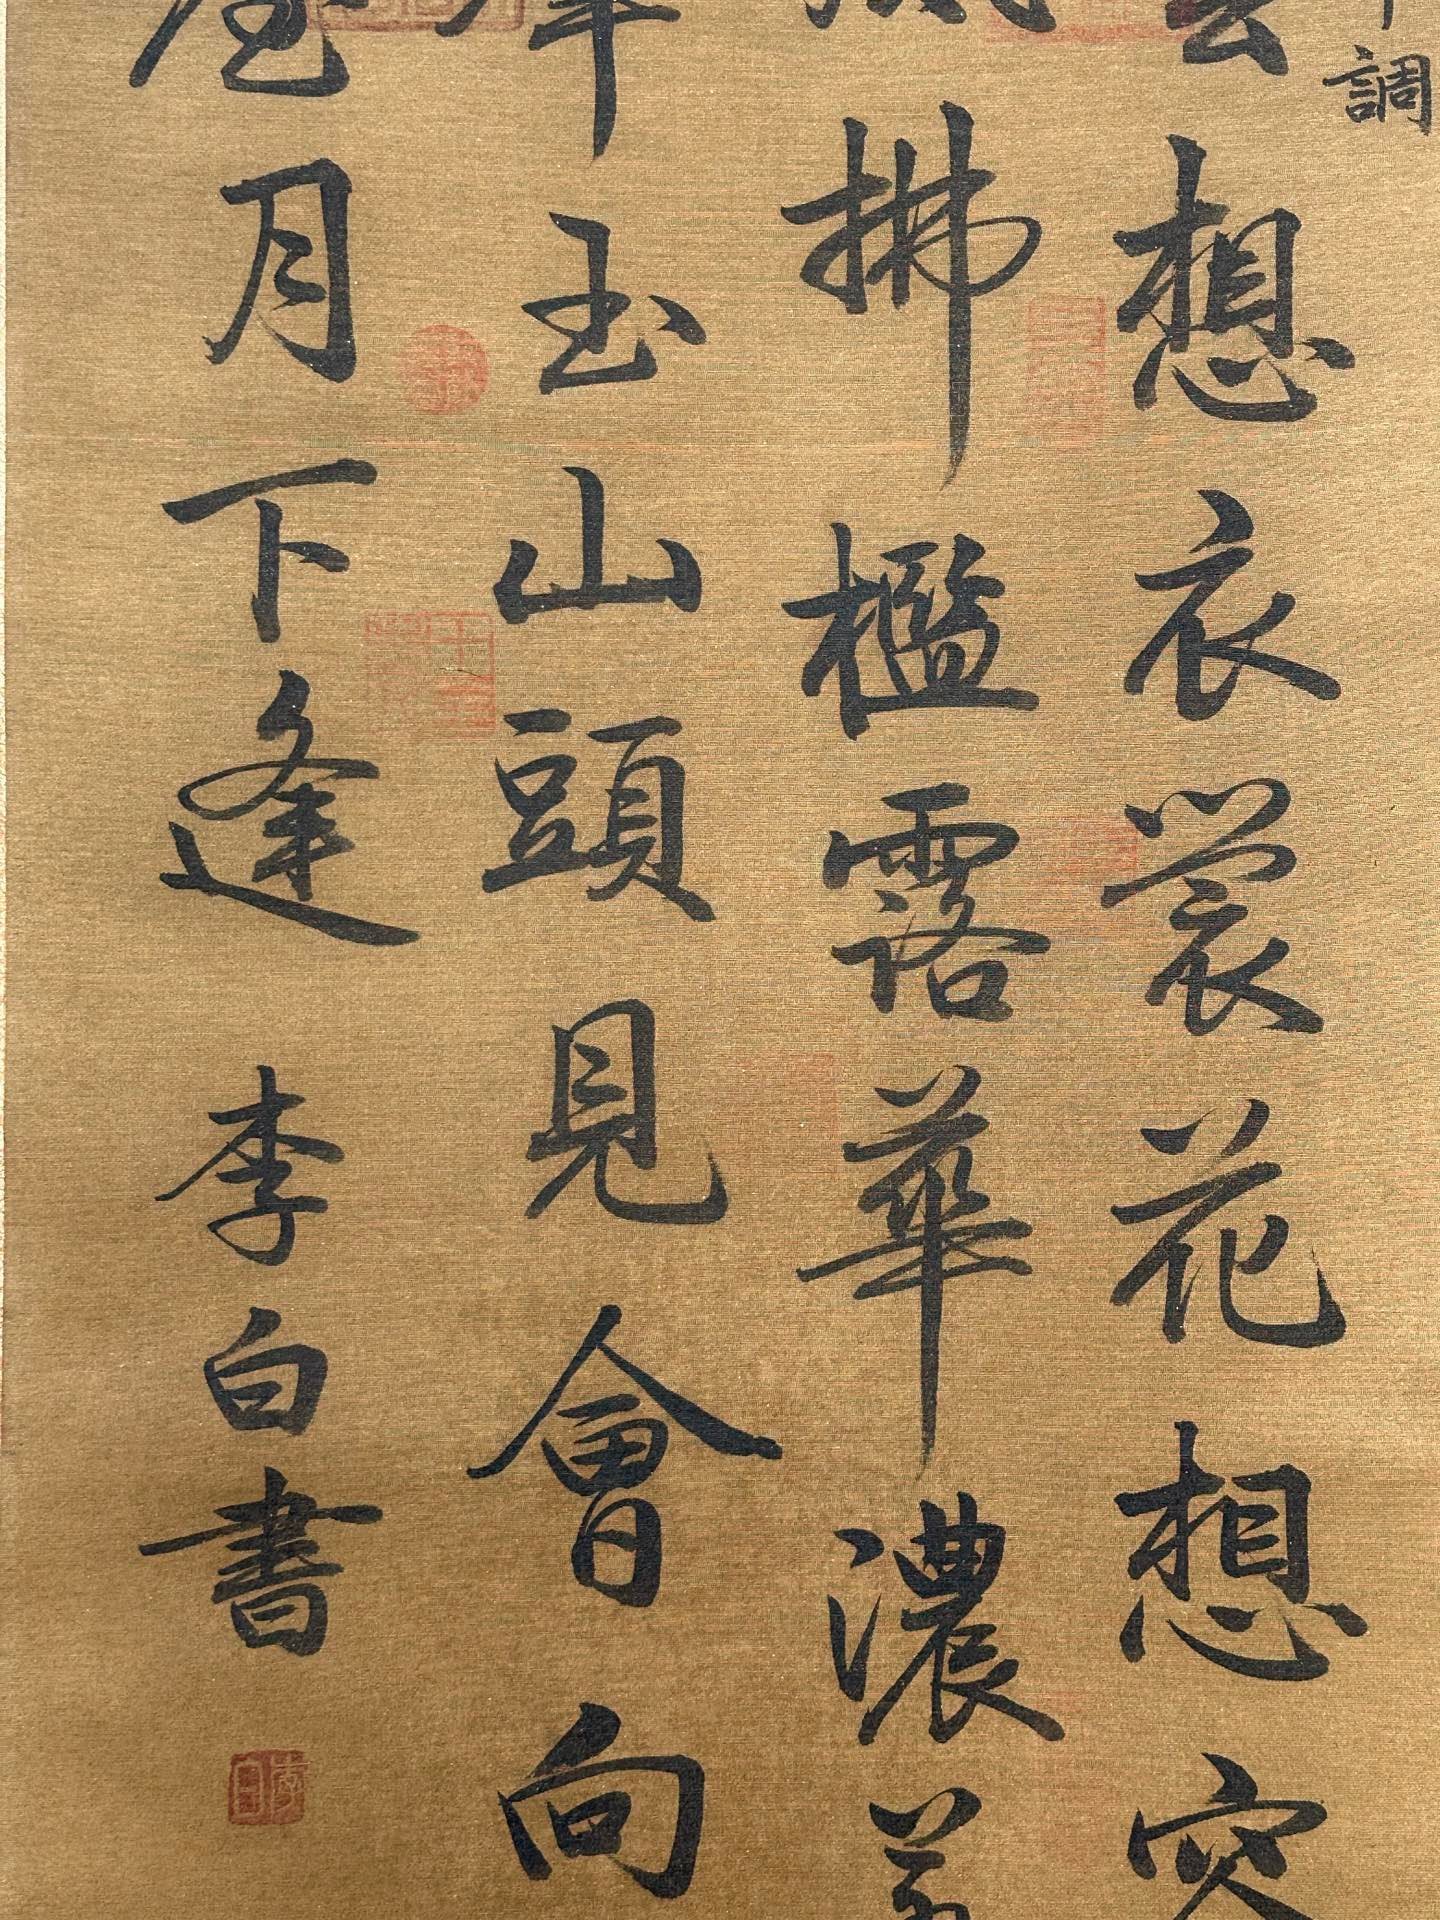 調
雲想衣裳花想容
風拂檻露華濃若
羣玉山頭見會向
月下逢 李白書